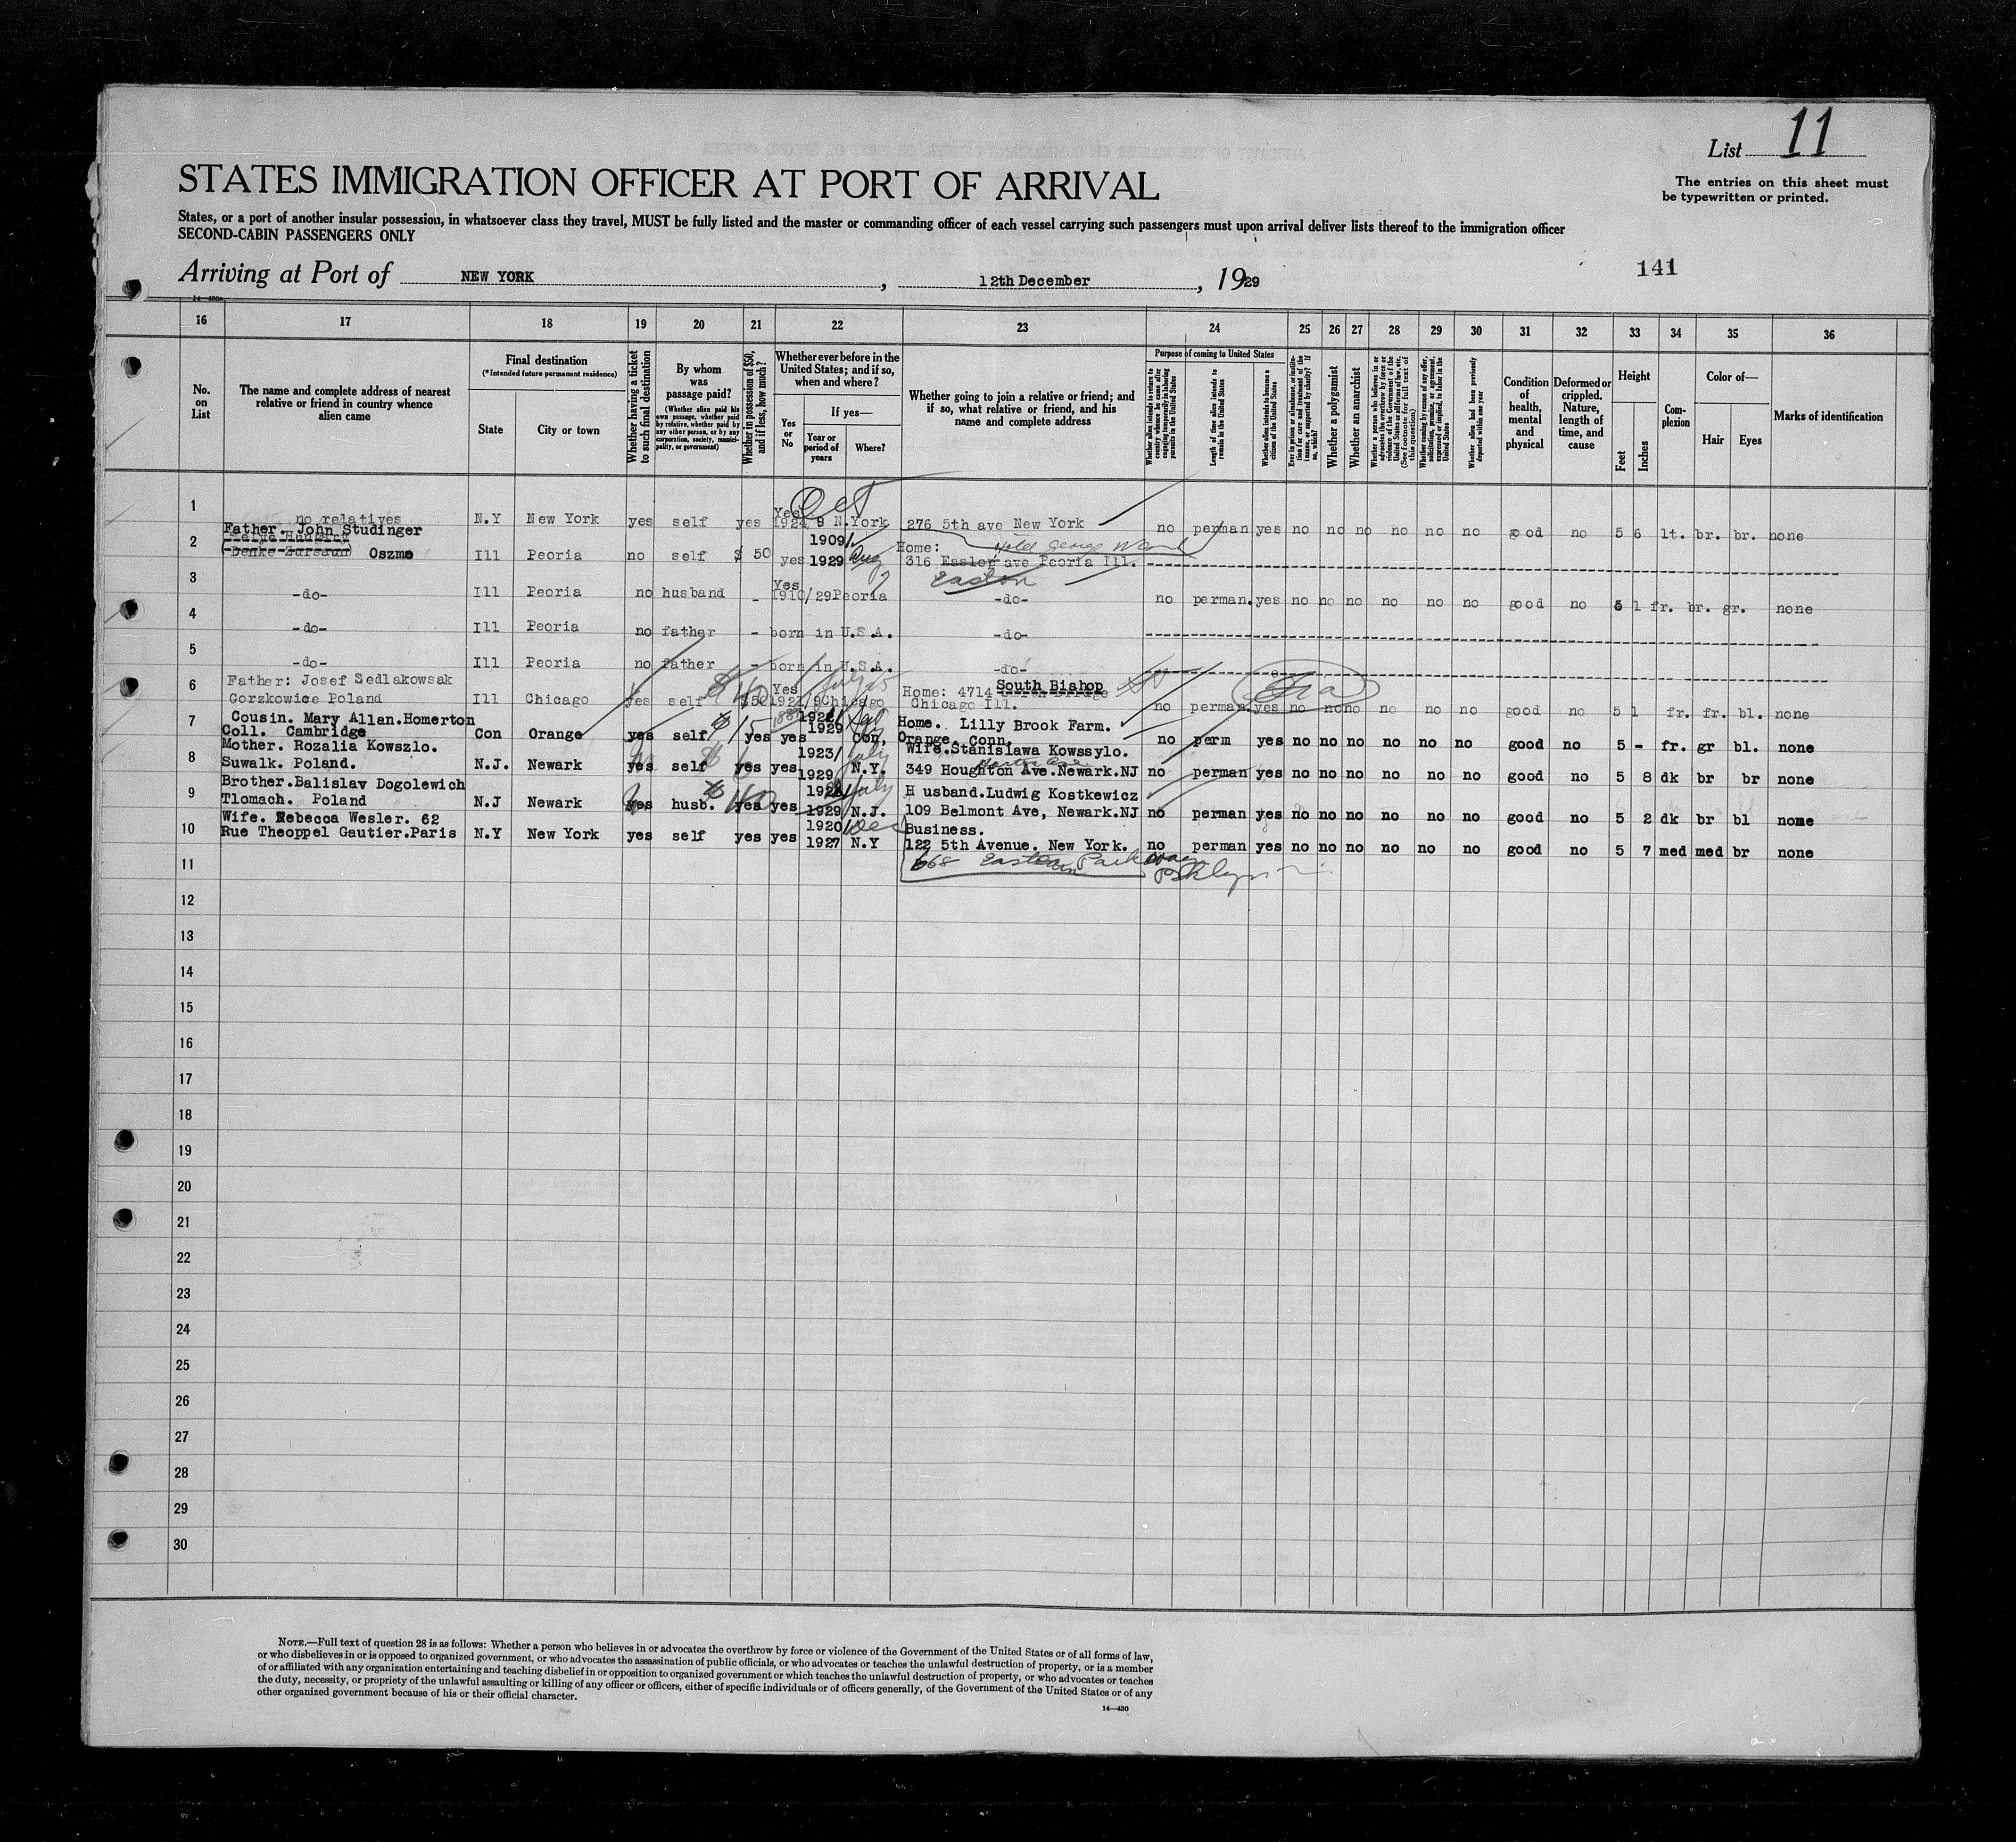 List 11
The entries on this sheet must
be typewritten or printed.
STATES IMMIGRATION OFFICER AT PORT OF ARRIVAL
States, or a port of another insular possession, in whatsoever class they travel, MUST be fully listed and the master or commanding officer of each vessel carrying such passengers must upon arrival deliver lists thereof to the immigration officer
SECOND-CABIN PASSENGERS ONLY
141
Arriving at Port of NEW YORK, 12th December, 1929
16 17 18 19 20 21 22 23 24 25 26 27 28 29 30 31 32 33 34 35 36
No. on List
The name and complete address of nearest relative or friend in country whence alien came
Final destination
(*Intended future permanent residence)
State
City or town
Whether having a ticket to such final destination
By whom was passage paid?
(Whether alien paid his own passage, whether paid by relative, whether paid by any other person, or by any corporation, society, municipality, or government)
Whether in possession of $50, and if less, how much?
Whether ever before in the United States; and if so, when and where?
Yes or No
If yes—
Year or period of years
Where?
Whether going to join a relative or friend; and if so, what relative or friend, and his name and complete address
Purpose of coming to United States
Whether alien intends to return to country whence he came after engaging temporarily in laboring pursuits in the United States
Length of time alien intends to remain in the United States
Whether alien intends to become a citizen of the United States
Ever in prison or almshouse, or institution for care and treatment of the insane, or supported by charity? If so, which?
Whether a polygamist
Whether an anarchist
Whether a person who believes in or advocates the overthrow by force or violence of the Government of the United States or all forms of law, etc. (See footnote for full text of this question)
Whether coming by reason of any offer, solicitation, promise, or agreement, expressed or implied, to labor in the United States
Whether alien had been previously deported within one year
Condition of health, mental and physical
Deformed or crippled. Nature, length of time, and cause
Height
Feet
Inches
Complexion
Color of—
Hair
Eyes
Marks of identification
1 no relatives N.Y New York yes self yes Yes 1924/9 N.York Oct 276 5th ave New York no perman yes no no no no no no good no 5 6 lt. br. br. none
2 Father. John Studinger Oszme Ill Peoria no self $ 50 yes 1909/1929 Aug Home: 316 Easlor ave Peoria Ill. Easton
3 -do- Ill Peoria no husband - Yes 1910/29 Peoria -do- no perman. yes no no no no no no good no 5 1 fr. br. gr. none
4 -do- Ill Peoria no father - born in U.S.A. -do-
5 -do- Ill Peoria no father - born in U.S.A. -do-
6 Father: Josef Sedlakowsak Gorzkowice Poland Ill Chicago yes self $50 Yes 1921/9 Chicago Home: 4714 South Bishop Chicago Ill. no perman. yes no no no no no no good no 5 1 fr. fr. bl. none
7 Cousin. Mary Allan. Homerton Coll. Cambridge Con Orange yes self yes yes 1929 Con, Home. Lilly Brook Farm. Orange. Conn. no perm yes no no no no no no good no 5 - fr. gr bl. none
8 Mother. Rozalia Kowszlo. Suwalk. Poland. N.J. Newark yes self yes yes 1923/1929 July N.Y. Wife. Stanislawa Kowssylo. 349 Houghton Ave. Newark. NJ no perman yes no no no no no no good no 5 8 dk br br none
9 Brother. Balislav Dogolewich Tlomach. Poland N.J Newark yes husb. yes yes 1929 July N.J. Husband. Ludwig Kostkewicz 109 Belmont Ave, Newark. NJ no perman yes no no no no no no good no 5 2 dk br bl none
10 Wife. Rebecca Wesler. 62 Rue Theoppel Gautier. Paris N.Y New York yes self yes yes 1920/1927 Dec N.Y Business. 122 5th Avenue. New York. no perman yes no no no no no no good no 5 7 med med br none
668 Eastern Parkway Bklyn
11
12
13
14
15
16
17
18
19
20
21
22
23
24
25
26
27
28
29
30
NOTE.—Full text of question 28 is as follows: Whether a person who believes in or advocates the overthrow by force or violence of the Government of the United States or of all forms of law,
or who disbelieves in or is opposed to organized government, or who advocates the assassination of public officials, or who advocates or teaches the unlawful destruction of property, or is a member
of or affiliated with any organization entertaining and teaching disbelief in or opposition to organized government or which teaches the unlawful destruction of property, or who advocates or teaches
the duty, necessity, or propriety of the unlawful assaulting or killing of any officer or officers, either of specific individuals or of officers generally, of the Government of the United States or of any
other organized government because of his or their official character.
14—430